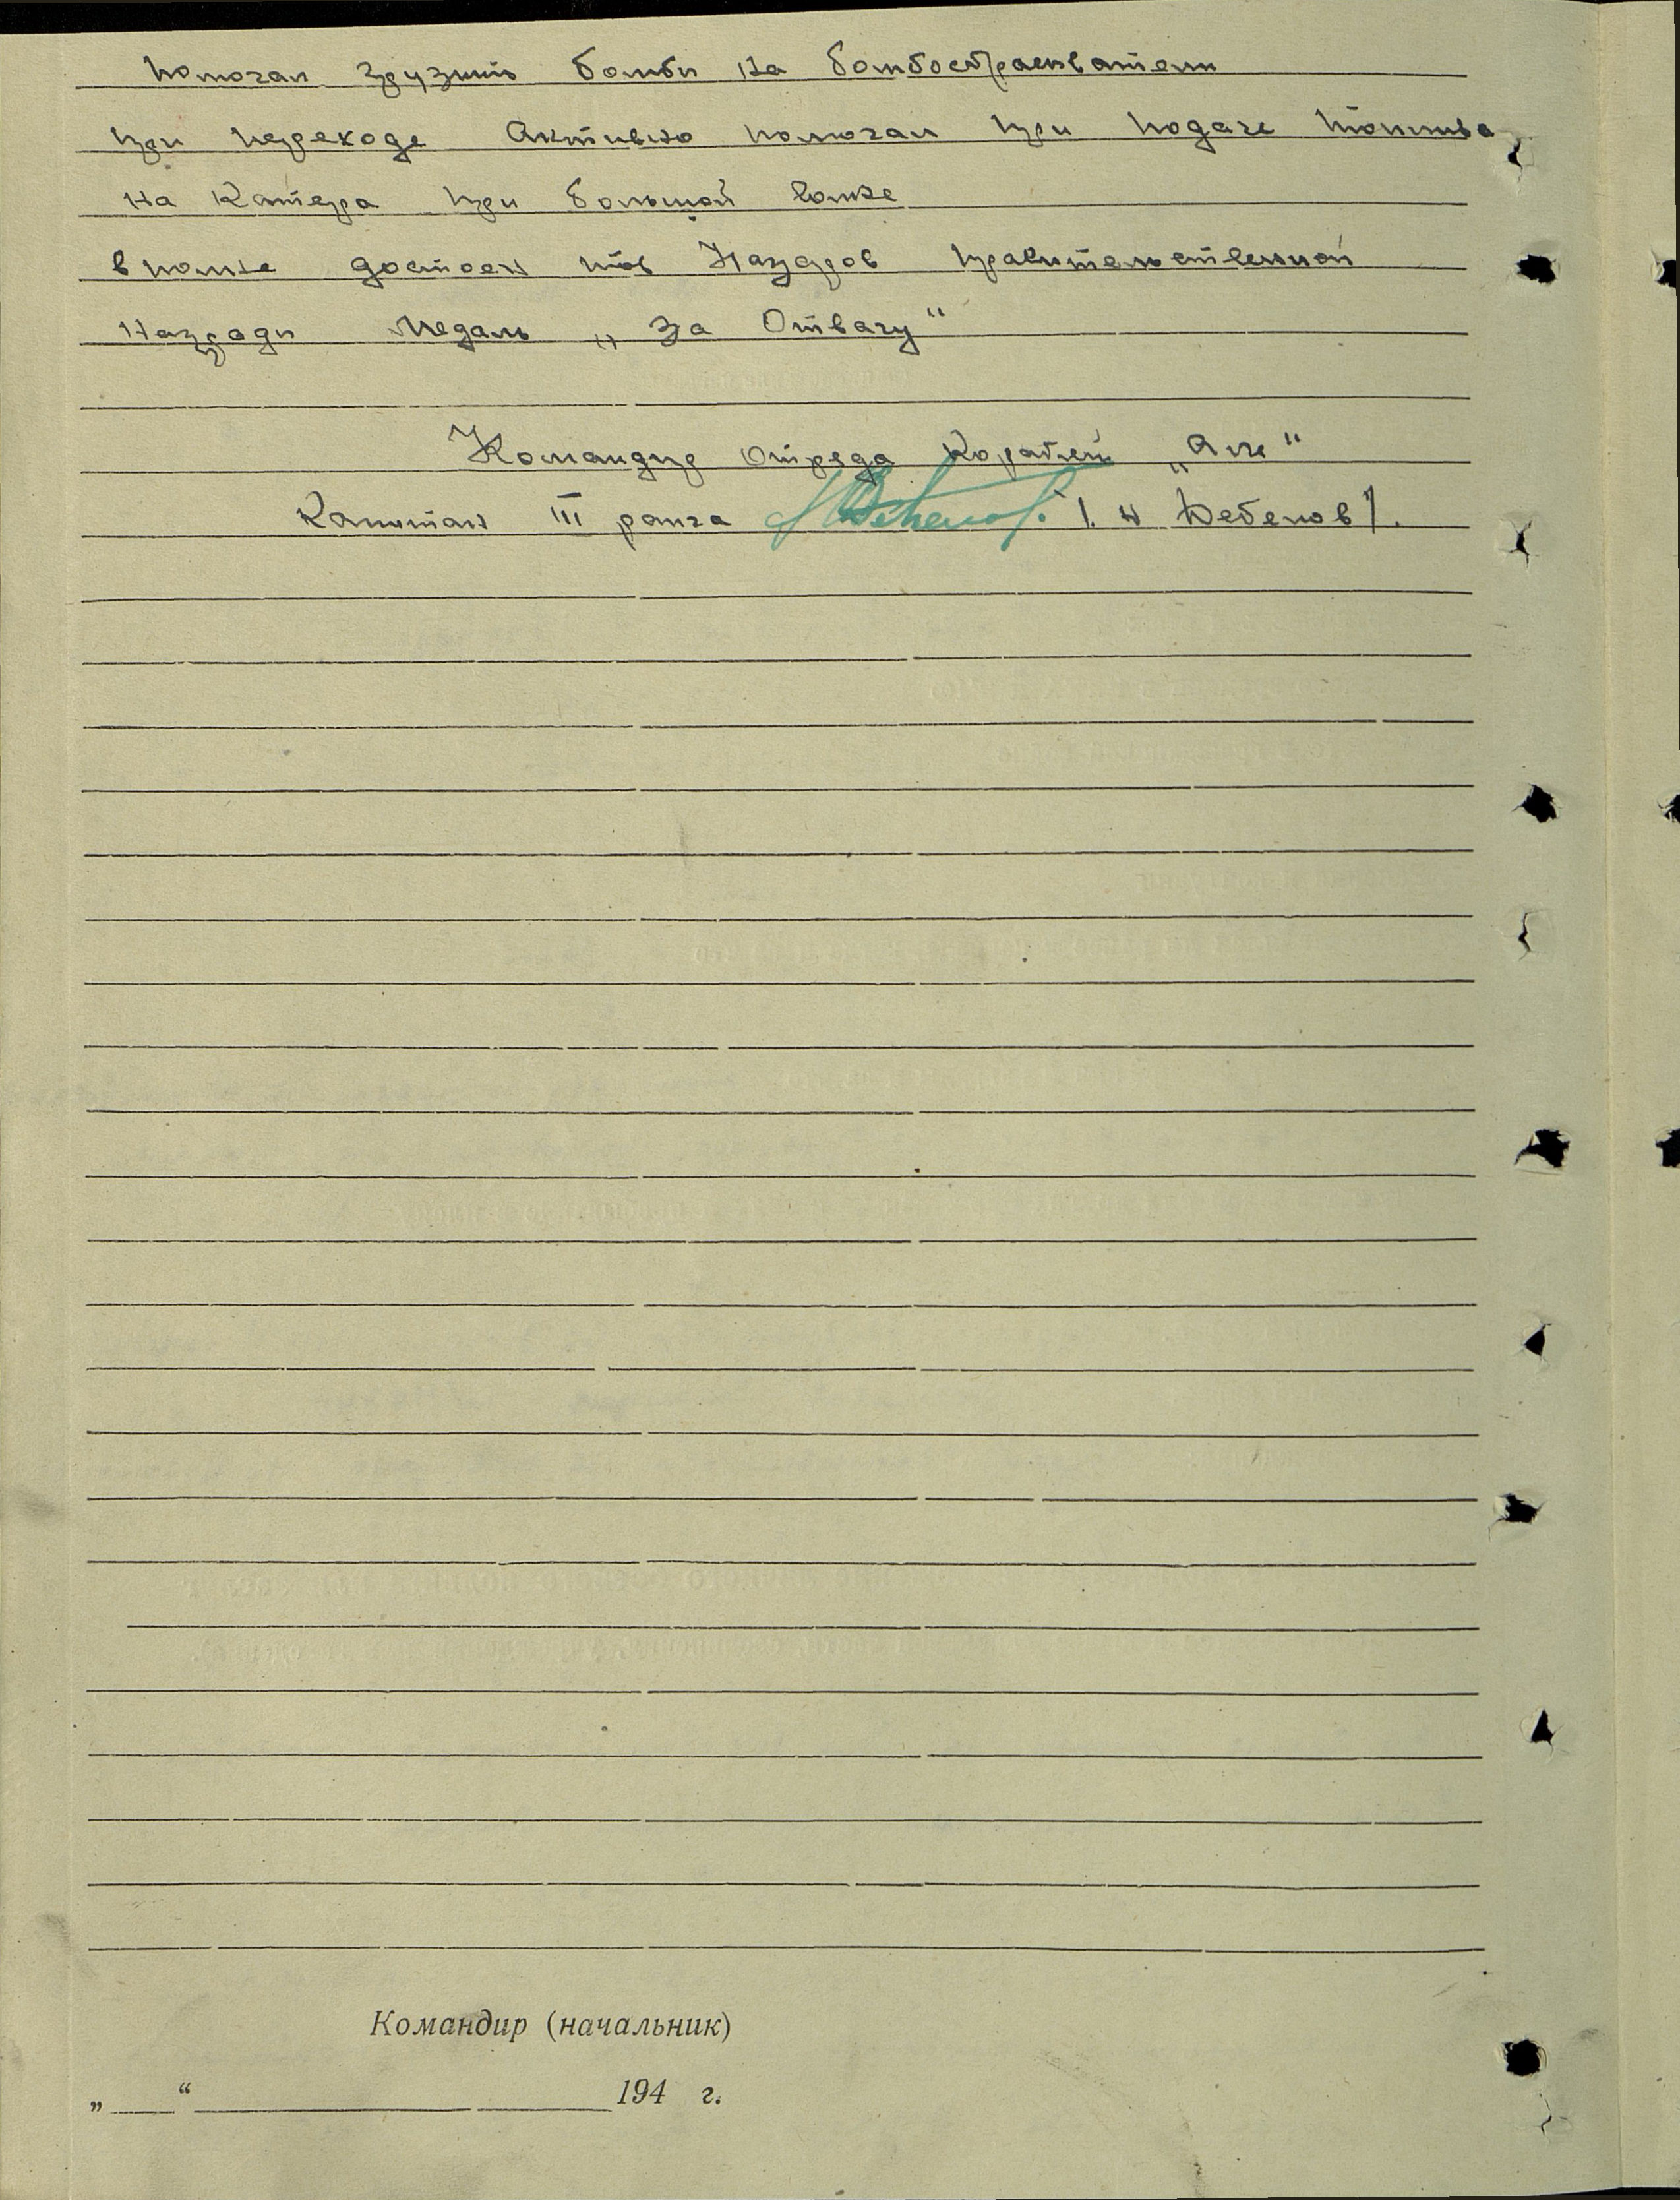 Помогал грузить бомбы на бомбосбрасыватели
при переходе Активно помогал при подаче топлива
на Катера при большой волне
вполне достоен тов Назаров правительственной
Награды Медаль „За Отвагу“
Командир Отряда Кораблей
Капитан III ранга /. Н Дебелов/.
Командир (начальник)
„ “ 194 г.